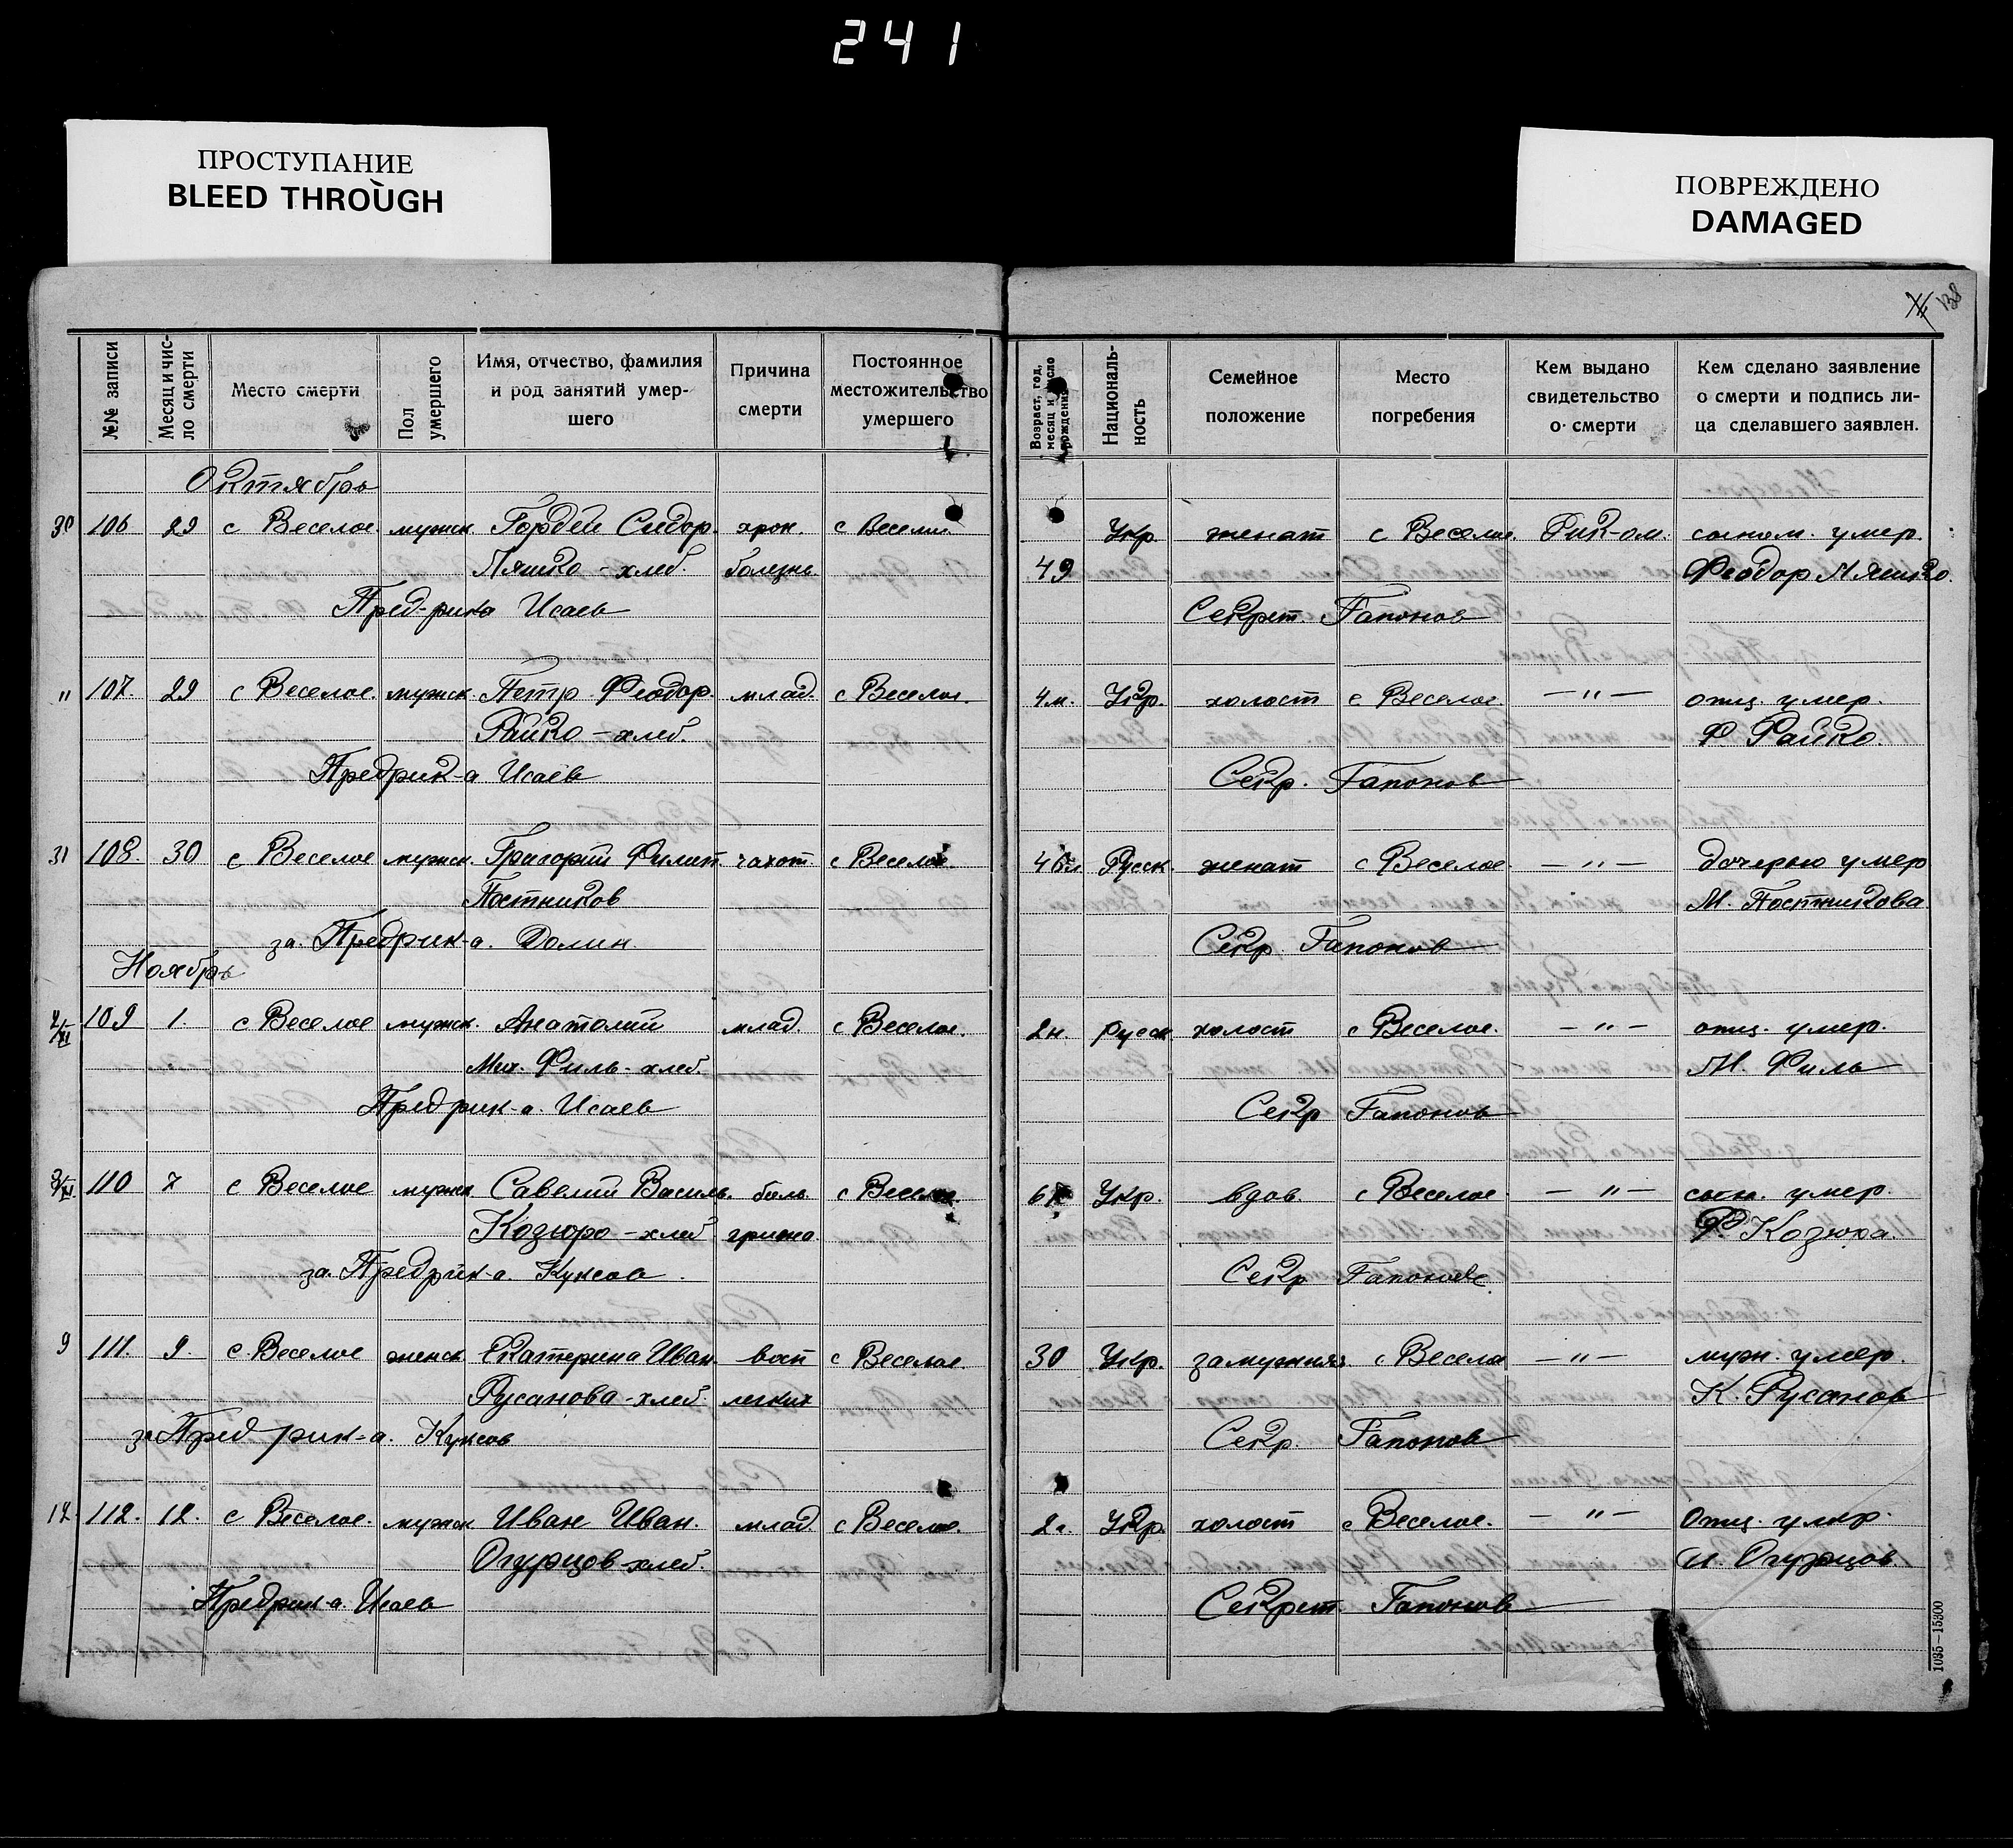 241
ПРОСТУПАНИЕ
BLEED THROUGH
ПОВРЕЖДЕНО
DAMAGED
138
№№ записи | Месяц и число смерти | Место смерти | Пол умершего | Имя, отчество, фамилия и род занятий умершего | Причина смерти | Постоянное местожительство умершего | Возраст, год, месяц и число рождения | Националь-ность | Семейное положение | Место погребения | Кем выдано свидетельство о смерти | Кем сделано заявление о смерти и подпись ли-ца сделавшего заявлен.
Октябрь
30 106 29 с Веселое. мужск Гордей Сидор. хрон. с Веселое Укр женат с Веселое. Рик-ом. сыном. умер.
Ляшко - хлеб. болезнь. 49 Феодор Ляшко.
Пред-рика Исаев Секрет. Гапонов
" 107. 29 с Веселое. мужск Петр Феодор. млад. с Веселое. 4 м. Укр. холост с Веселое. — " — отц. умер.
Райко - хлеб. Ф Райко.
Предрик-а Исаев Секр. Гапонов
31 108. 30 с Веселое мужск. Григорий Филип. чахот. с Веселое. Русск женат с Веселое — " — дочерью умер
Постников М. Постникова
за. Предрик-а. Долин. Секр. Гапонов
Ноябрь
2/XI 109 1. с Веселое мужск. Анатолий млад. с Веселое. 2 н. русск холост с Веселое. — " — отц. умер.
Мих. Филь - хлеб. М. Филь
Предрик-а. Исаев Секр Гапонов
110 7 с Веселое мужск Савелий Василь. боль с Веселое Укр. вдов. с Веселое. — " — сын. умер.
Козюро - хлеб грыжа Ф Козюра.
за. Предрик-а. Куксов. Секр Гапонов
9 111. 9. с. Веселое женск Екатерина Иван. восп с Веселое. 30 Укр. замужняя с Веселое — " — муж. умер.
Русанова - хлеб. легких К. Русанов
за Пред рик-а. Куксов Секр. Гапонов
12. 112. 12. с Веселое. мужск Иван Иван. млад. с Веселое. 2 г. Укр. холост с Веселое. — " — Отц. умер.
Огурцов - хлеб. И. Огурцов
Предрик-а. Исаев Секрет. Гапонов
1035—15300